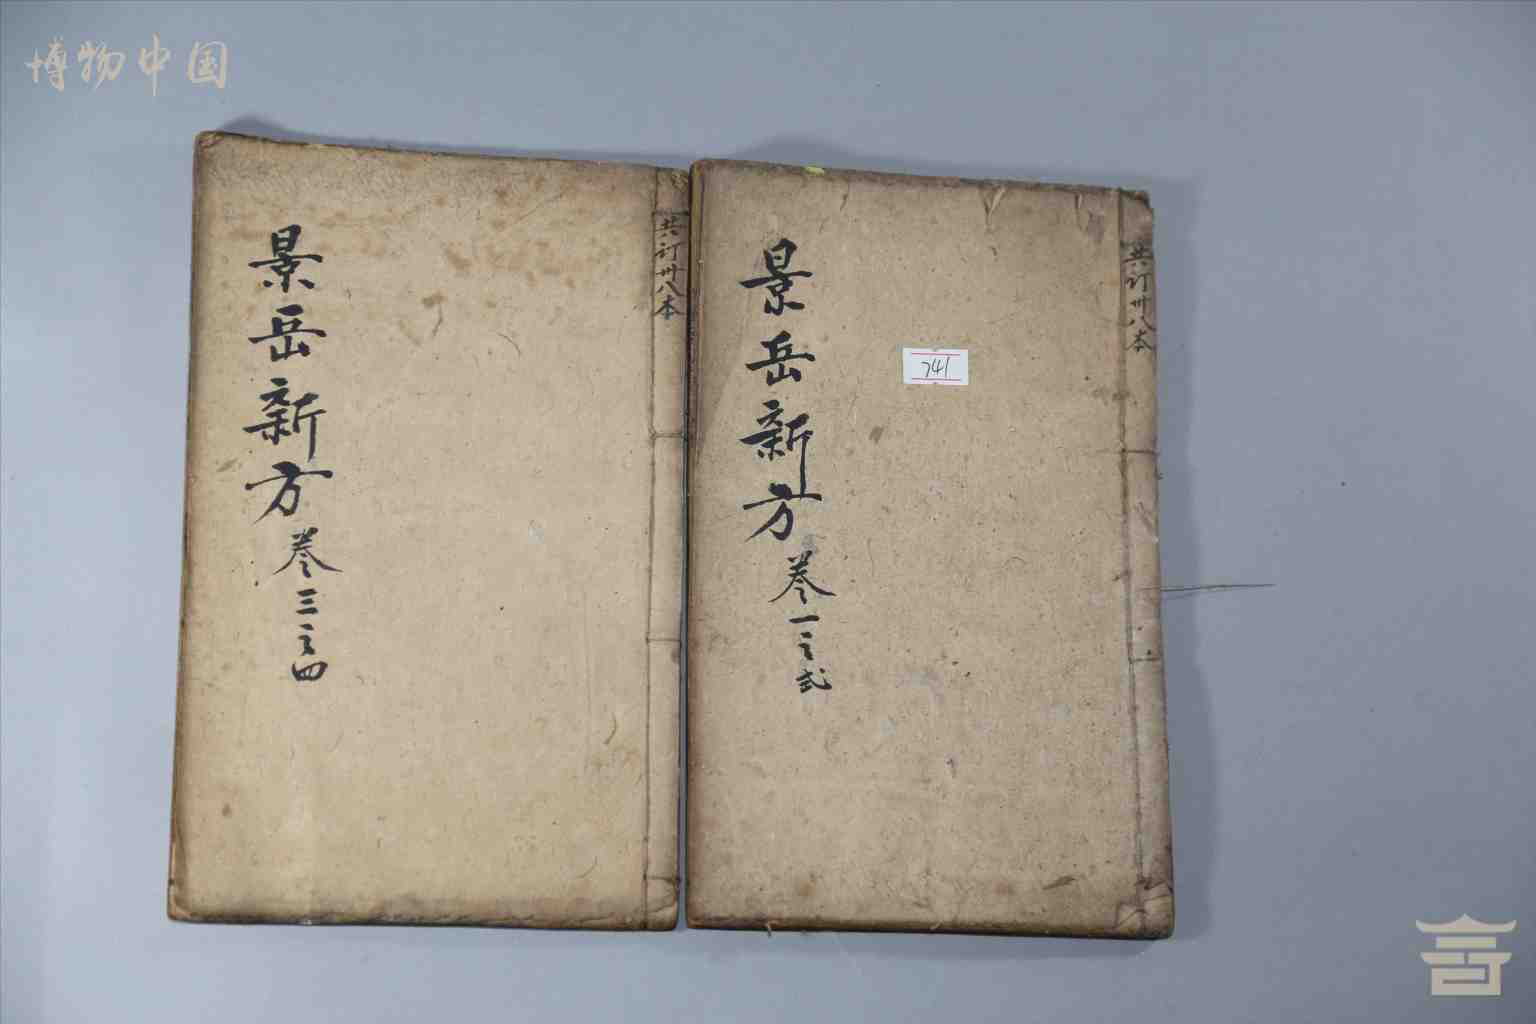 博物中国
景岳新方
卷一之弍
共订卅八本
741
景岳新方
卷三之四
共订卅八本